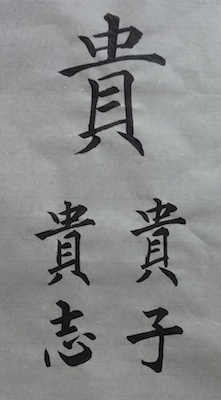 貴
貴子
貴志